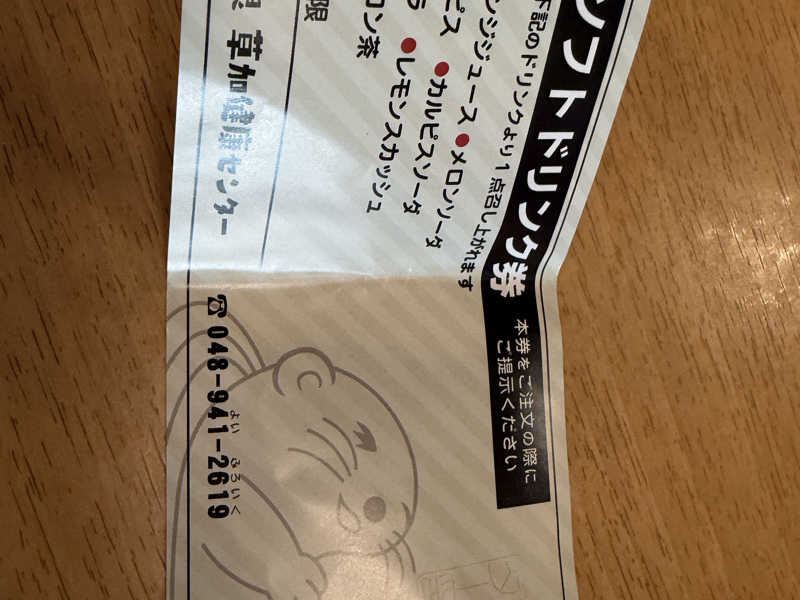 ソフトドリンク券
本券をご注文の際に
ご提示ください
下記のドリンクより1点召し上がれます
ンジジュース ●メロンソーダ
ピス ●カルピスソーダ
ラ ●レモンスカッシュ
ロン茶
限
草加健康センター
よい ふろいく
☎048-941-2619